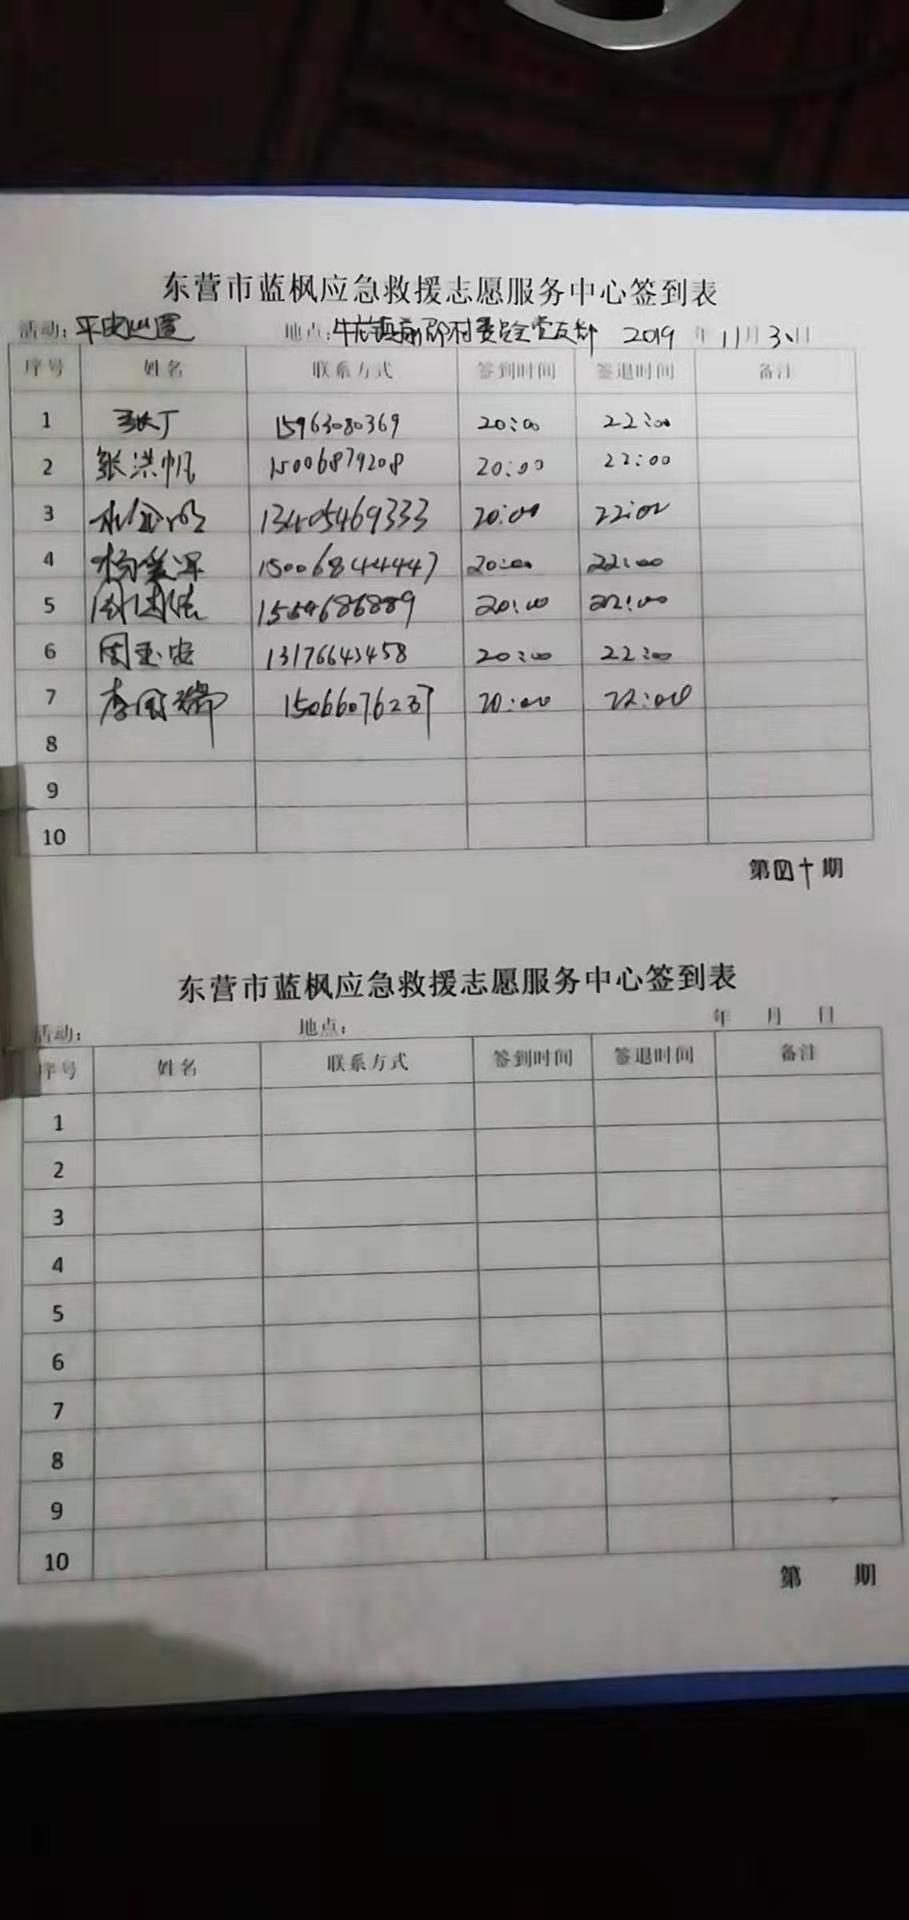 东营市蓝枫应急救援志愿服务中心签到表
活动: 平安巡逻 地点: 牛庄镇 村委会党支部 2019 年 11 月 3 日
序号 姓名 联系方式 签到时间 签退时间 备注
1 张丁 15963080369 20:00 22:00
2 张洪帆 15006879208 20:00 22:00
3 13405469333 20:00 22:00
4 15006844447 20:00 22:00
5 20:00 22:00
6 周玉忠 13176643458 20:00 22:00
7 李国瑞 15066076237 20:00 22:00
8
9
10
第四十期
东营市蓝枫应急救援志愿服务中心签到表
活动: 地点: 年 月 日
序号 姓名 联系方式 签到时间 签退时间 备注
1
2
3
4
5
6
7
8
9
10
第 期